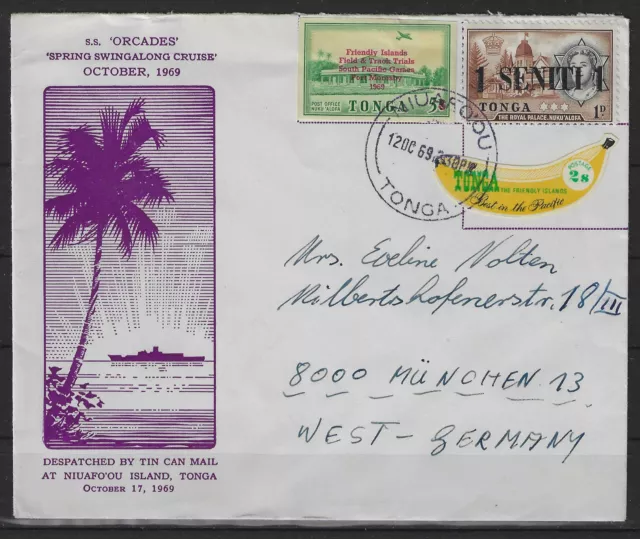 S.S. 'ORCADES'
'SPRING SWINGALONG CRUISE'
OCTOBER, 1969
DESPATCHED BY TIN CAN MAIL
AT NIUAFO'OU ISLAND, TONGA
OCTOBER 17, 1969
Friendly Islands
Field & Track Trials
South Pacific Games
Port Moresby
1969
POST OFFICE
NUKU'ALOFA
TONGA 5s
1 SENITI 1
TONGA 1D
THE ROYAL PALACE, NUKU'ALOFA
POSTAGE
2s
TONGA THE FRIENDLY ISLANDS
Best in the Pacific
NIUAFO'OU
12OC 69
TONGA
Mrs. Eveline Nolten
Milbertshofenerstr. 18/III
8000 MÜNCHEN 13
WEST-GERMANY